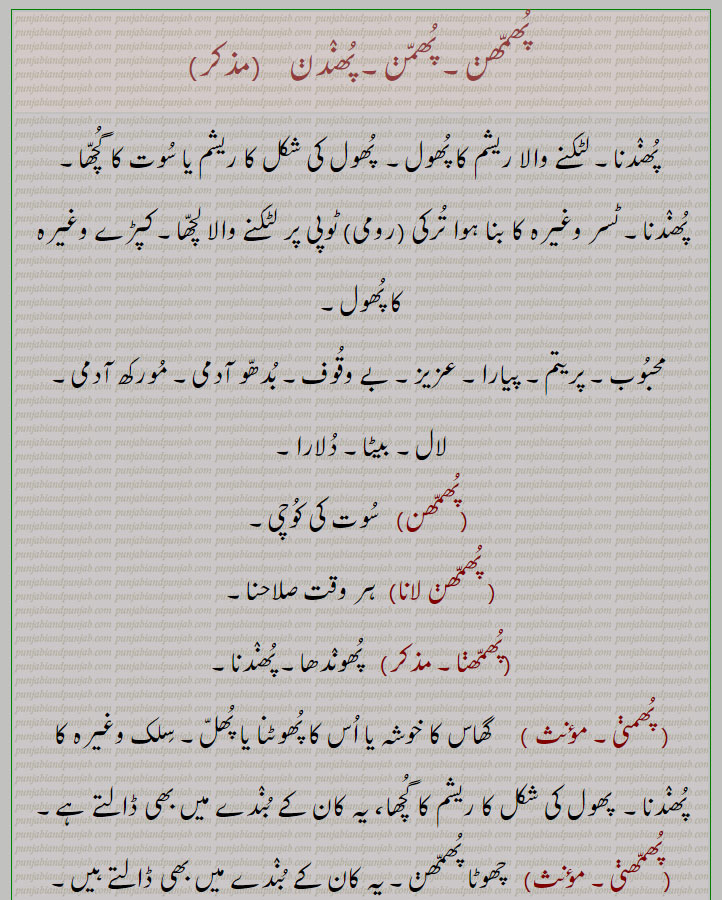 پُھمّھن ۔ پُھمّن ۔ پُھنْدن (مذکر)
پُھنْدنا ۔ لٹکنے والا ریشم کا پُھول ۔ پُھول کی شکل کا ریشم یا سُوت کا گُچھّا ۔
پُھنْدنا ۔ ٹسر وغیرہ کا بنا ہوا تُرکی (رومی) ٹوپی پر لٹکنے والا لچھّا ۔ کپڑے وغیرہ
کا پُھول ۔
محبُوب ۔ پریتم ۔ پیارا ۔ عزیز ۔ بے وقُوف ۔ بُدھّو آدمی ۔ مُورکھ آدمی ۔
لال ۔ بیٹا ۔ دُلارا ۔
(پُھمّھن) سُوت کی کُوچی ۔
(پُھمّھن لانا) ہر وقت صلاحنا ۔
(پُھمّھنا ۔ مذکر) پُھونْدھا ۔ پُھنْدنا ۔
(پُھمنی ۔ مؤنث) گھاس کا خوشہ یا اُس کا پُھوٹنا یا پُھلّ ۔ سِلک وغیرہ کا
پُھنْدنا ۔ پھول کی شکل کا ریشم کا گُچھا، یہ کان کے بُنْدے میں بھی ڈالتے ہے ۔
(پُھمّھنی ۔ مؤنث) چھوٹا پُھمّھن ۔ یہ کان کے بُنْدے میں بھی ڈالتے ہیں ۔